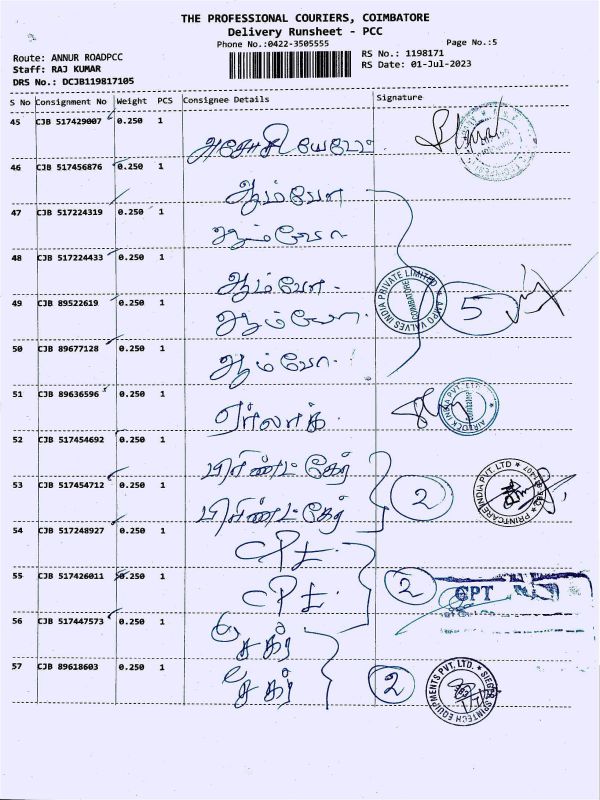 THE PROFESSIONAL COURIERS, COIMBATORE
Delivery Runsheet - PCC
Phone No.:0422-3505555
Page No.:5
Route: ANNUR ROADPCC
RS No.: 1198171
Staff: RAJ KUMAR
RS Date: 01-Jul-2023
DRS No.: DCJB119817105
S No Consignment No Weight PCS Consignee Details Signature
45 CJB 517429007 0.250 1
46 CJB 517456876 0.250 1
ஆம்போ
47 CJB 517224319 0.250 1
ஆம்போ
48 CJB 517224433 0.250 1
ஆம்போ.
49 CJB 89522619 0.250 1
ஆம்போ.
AMPO VALVES INDIA PRIVATE LIMITED
COIMBATORE
5
50 CJB 89677128 0.250 1
ஆம்போ.
51 CJB 89636596 0.250 1
ஏர்லாக்.
AIRLOCK INDIA PVT. LTD
52 CJB 517454692 0.250 1
பிரிண்ட் கேர்
53 CJB 517454712 0.250 1
பிரிண்ட் கேர்
2
PRINTCARE INDIA PVT. LTD
54 CJB 517248927 0.250 1
55 CJB 517426011 0.250 1
2
GPT
56 CJB 517447573 0.250 1
57 CJB 89618603 0.250 1
2
SIEGER SPINTECH EQUIPMENTS PVT. LTD.